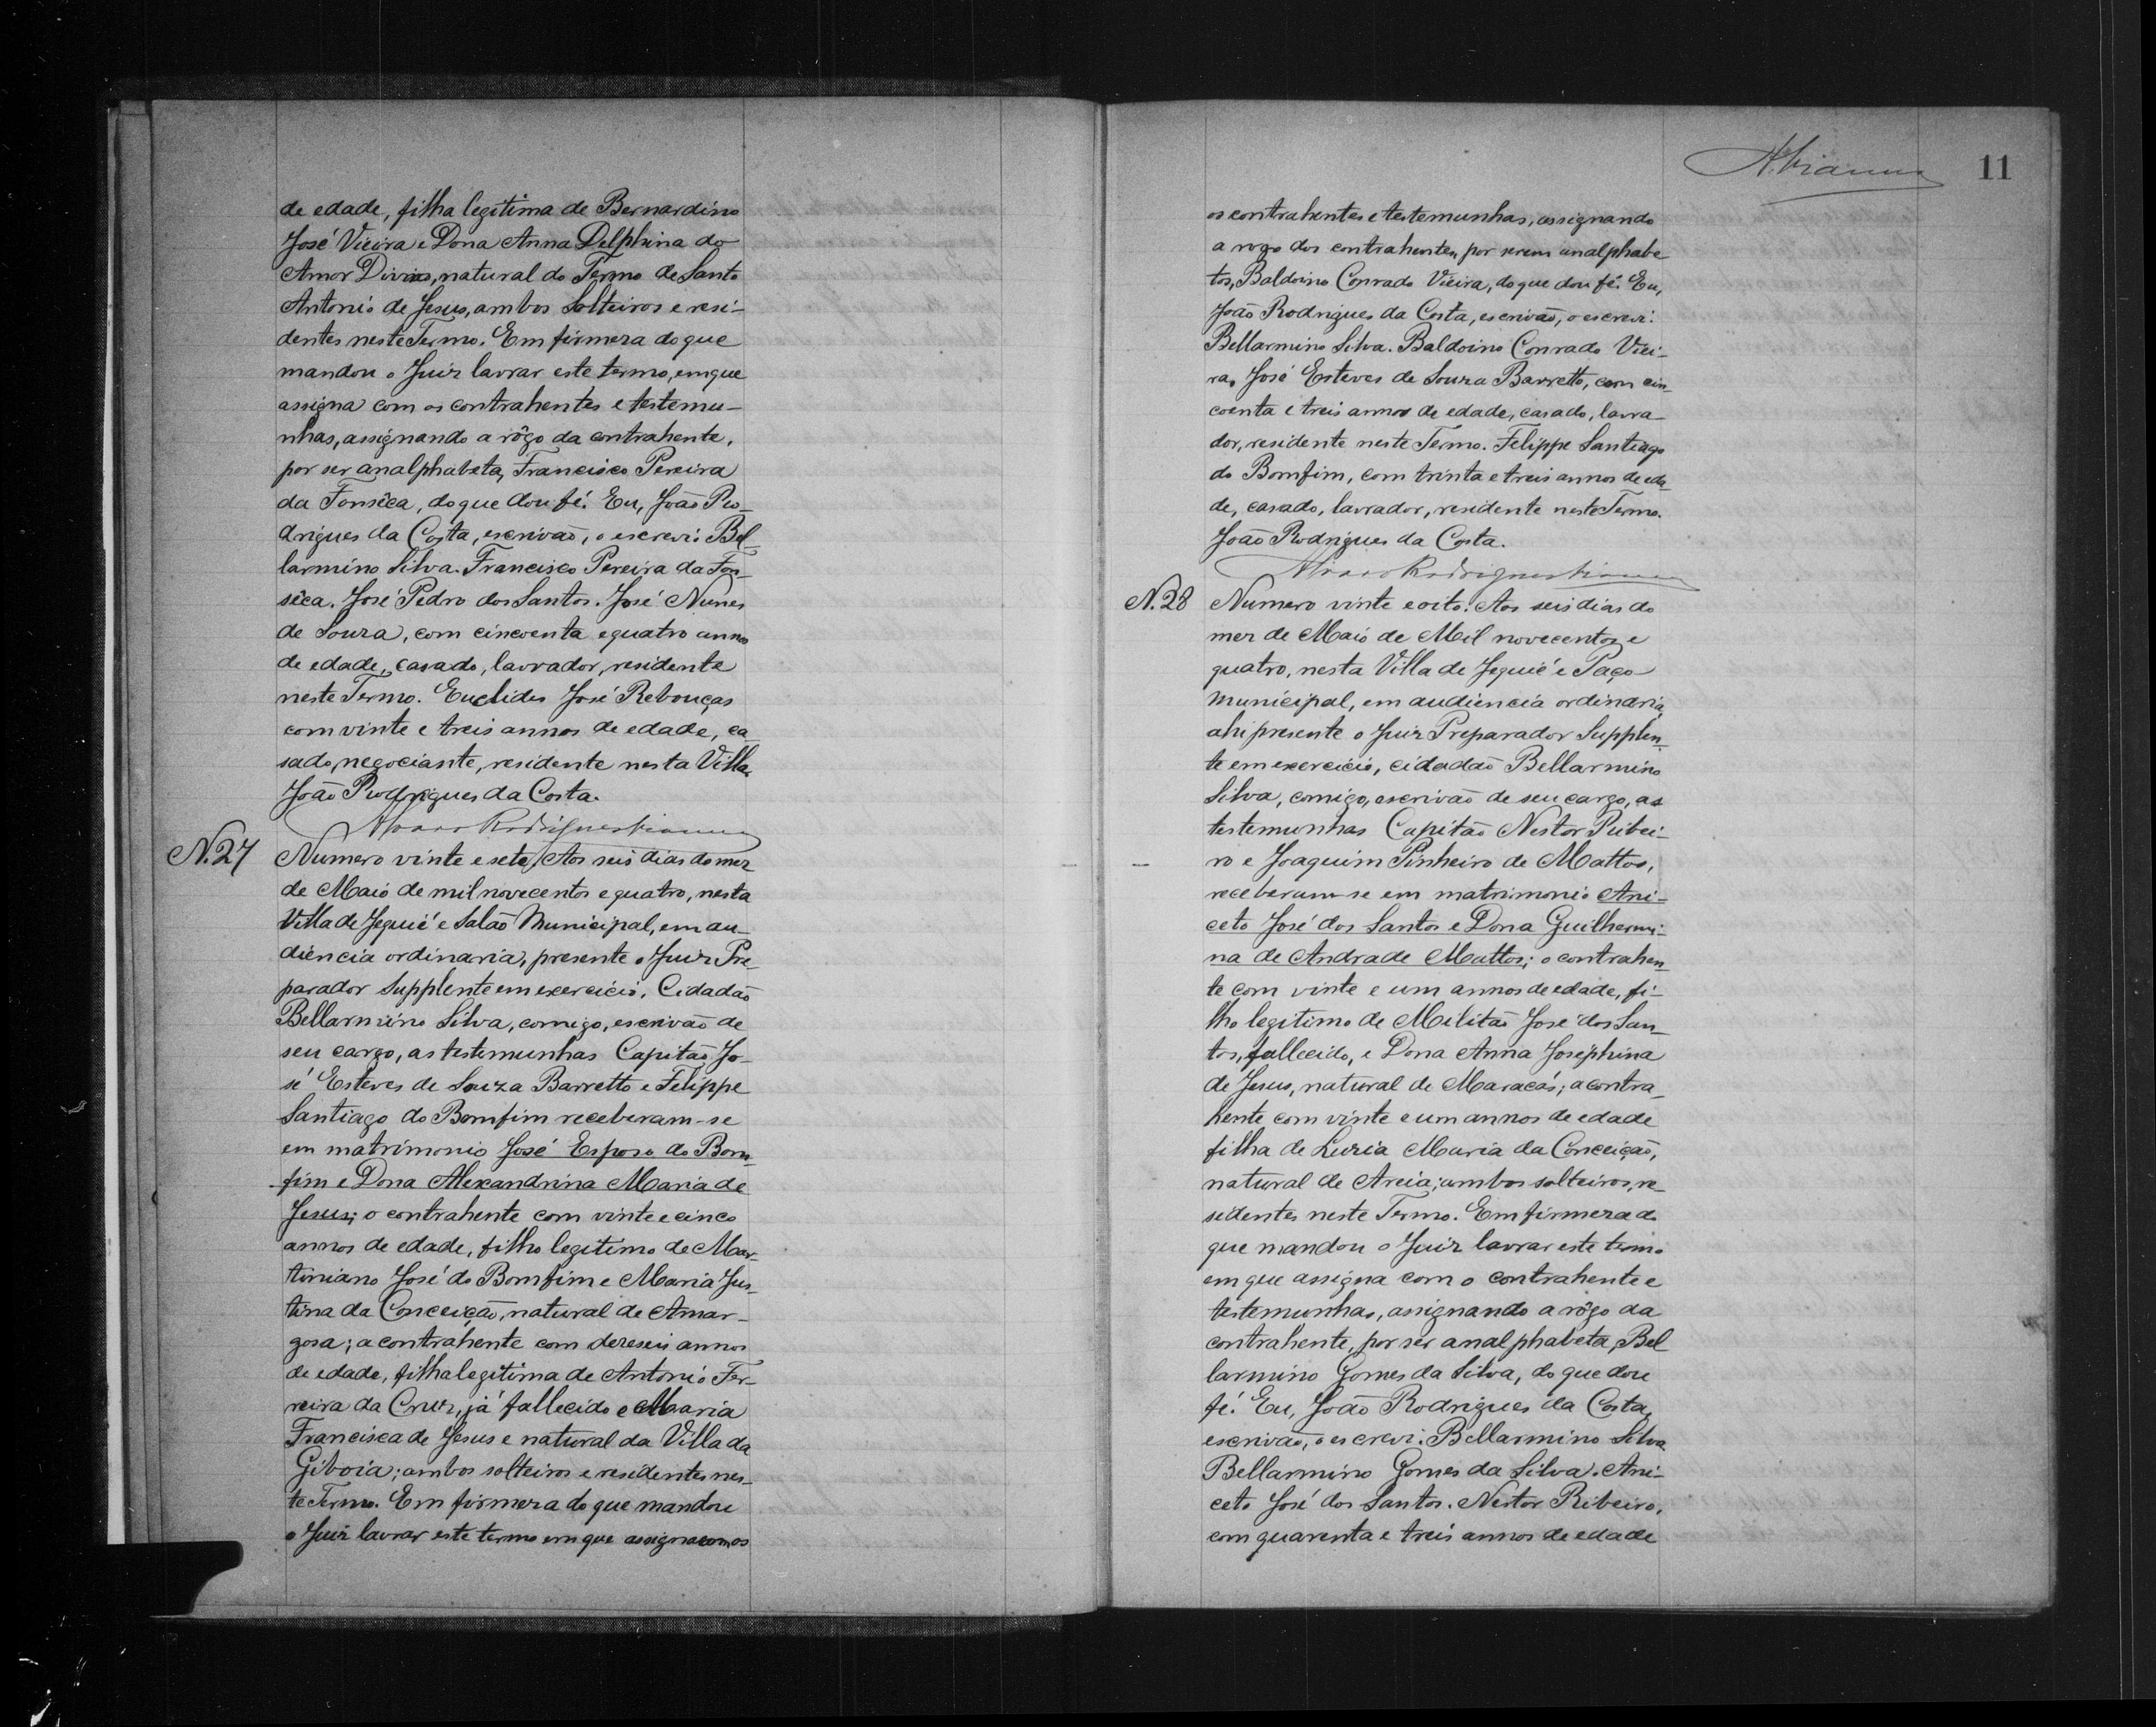 de edade, filha legitima de Bernardino
José Vieira e Dona Anna Delphina do
Amor Divino, natural do Termo de Santo
Antonio de Jesus, ambos solteiros e resi-
dentes neste Termo. Em firmeza do que
mandou o Juiz lavrar este termo, em que
assigna com os contrahentes e testemu-
nhas, assignando a rôgo da contrahente,
por ser analphabeta, Francisco Pereira
da Fonsêca, do que dou fé. Eu, João Ro-
drigues da Costa, escrivão, o escrevi. Bel-
larmino Silva. Francisco Pereira da Fon-
sêca. José Pedro dos Santos. José Nunes
de Souza, com cincoenta e quatro annos
de edade, casado, lavrador, residente
neste Termo. Euclides José Rebouças
com vinte e treis annos de edade, ca-
sado, negociante, residente nesta Villa.
João Rodrigues da Costa.
Rodrigues Vianna
N. 27 Numero vinte e sete. Aos seis dias do mez
de Maio de mil novecentos e quatro, nesta
Villa de Jequié e Salão Municipal, em au-
diencia ordinaria, presente o Juiz Pre-
parador Supplente em exercicio, Cidadão
Bellarmino Silva, comigo, escrivão de
seu cargo, as testemunhas Capitão Jo-
sé Esteves de Souza Barretto e Felippe
Santiago do Bomfim receberam-se
em matrimonio José Esposo do Bom-
fim e Dona Alexandrina Maria de
Jesus; o contrahente com vinte e cinco
annos de edade, filho legitimo de Mar-
tiniano José do Bomfim e Maria Jus-
tina da Conceição, natural de Amar-
gosa; a contrahente com dezeseis annos
de edade, filha legitima de Antonio Fer-
reira da Cruz, já fallecido e Maria
Francisca de Jesus e natural da Villa da
Giboia; ambos solteiros e residentes nes-
te Termo. Em firmeza do que mandou
o Juiz lavrar este termo em que assigna com os
A. Vianna 11
os contrahentes e testemunhas, assignando
a rogo dos contrahentes, por serem analphabe
tos, Baldoino Conrado Vieira, do que dou fé. Eu,
João Rodrigues da Costa, escrivão, o escrevi.
Bellarmino Silva. Baldoino Conrado Viei-
ra. José Esteves de Souza Barretto, com cin-
coenta e treis annos de edade, casado, lavra-
dor, residente neste Termo. Felippe Santiago
do Bomfim, com trinta e treis annos de eda-
de, casado, lavrador, residente neste Termo.
João Rodrigues da Costa.
Rodrigues Vianna
N. 28 Numero vinte e oito. Aos seis dias do
mez de Maio de Mil novecentos e
quatro, nesta Villa de Jequié e Paço
Municipal, em audiencia ordinaria,
ahi presente o Juiz Preparador Supplen-
te em exercicio, cidadão Bellarmino
Silva, comigo, escrivão de seu cargo, as
testemunhas Capitão Nestor Ribei-
ro e Joaquim Pinheiro de Mattos,
receberam-se em matrimonio Ani-
ceto José dos Santos e Dona Guilhermi-
na de Andrade Mattos; o contrahen-
te com vinte e um annos de edade, fi-
lho legitimo de Militão José dos San-
tos, fallecido, e Dona Anna Josephina
de Jesus, natural de Maracás; a contra-
hente com vinte e um annos de edade
filha de Luzia Maria da Conceição,
natural de Areia; ambos solteiros, re-
sidentes neste Termo. Em firmeza do
que mandou o Juiz lavrar este termo
em que assigna com o contrahente e
testemunhas, assignando a rôgo da
contrahente, por ser analphabeta, Bel
larmino Gomes da Silva, do que dou
fé. Eu, João Rodrigues da Costa,
escrivão, o escrevi. Bellarmino Silva
Bellarmino Gomes da Silva. Ani-
ceto José dos Santos. Nestor Ribeiro,
com quarenta e treis annos de edade